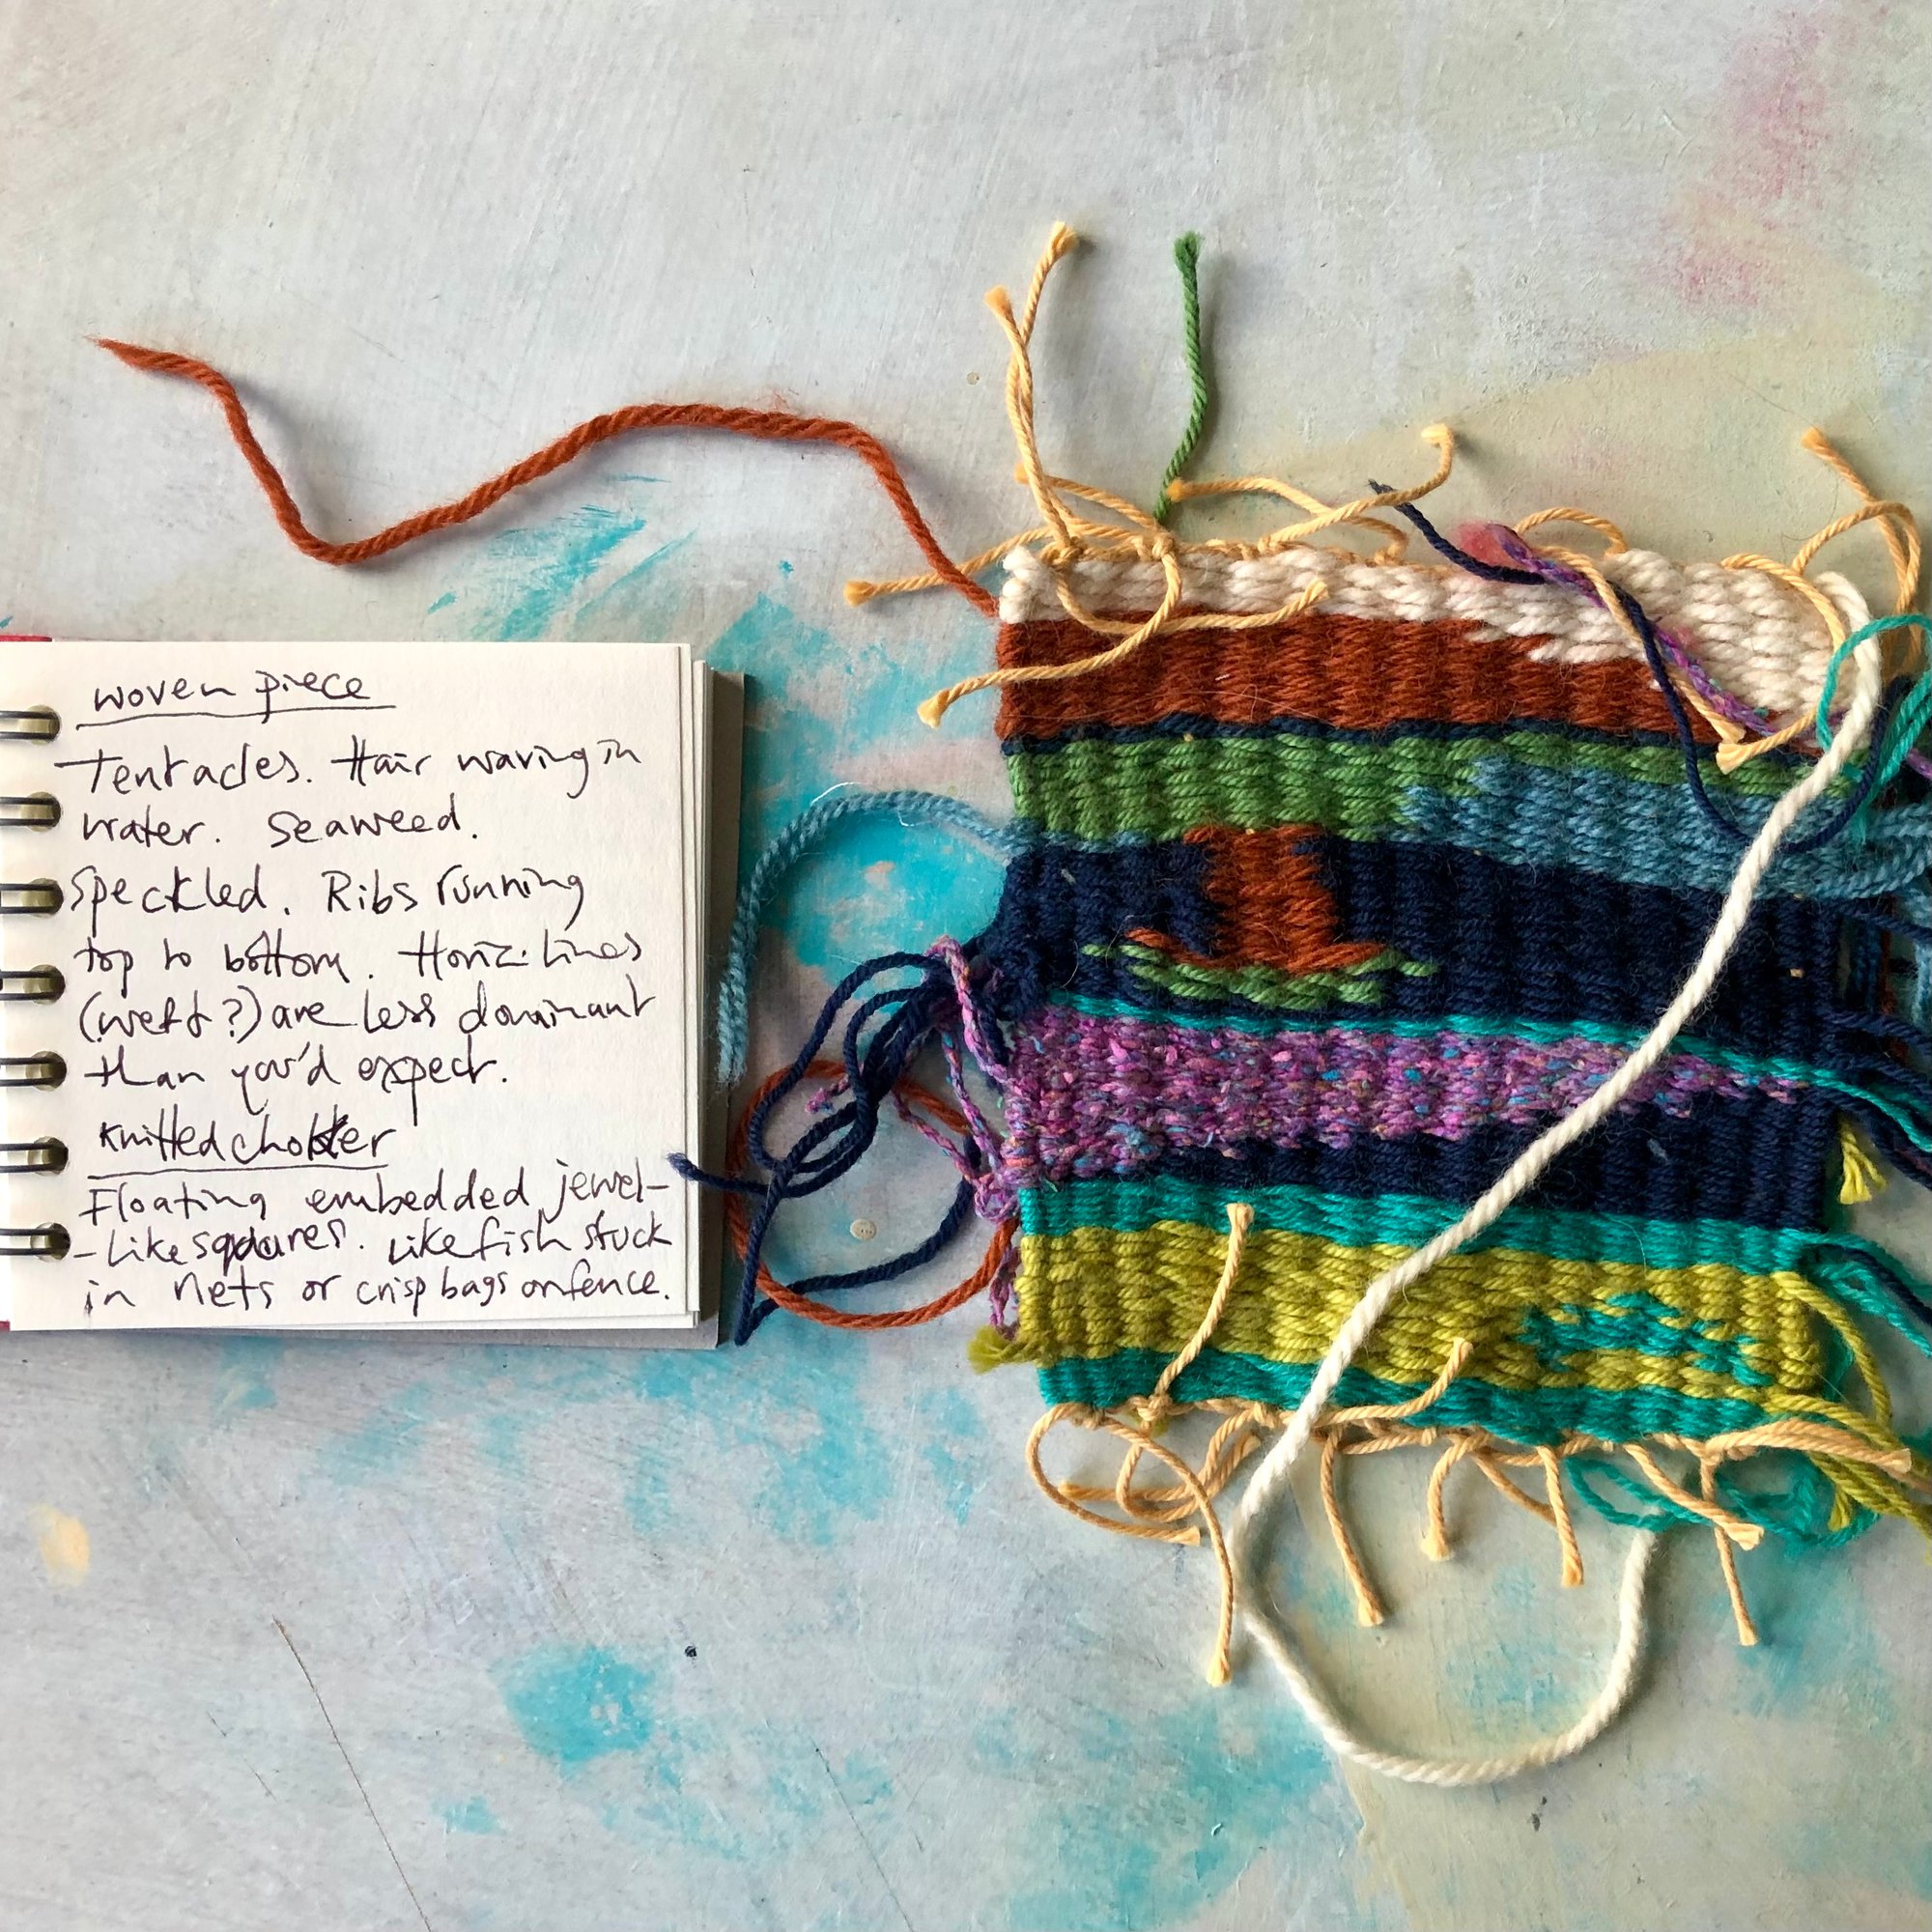 woven piece
Tentacles. Hair waving in
water. Seaweed.
Speckled. Ribs running
top to bottom. Horiz. Lines
(weft?) are less dominant
than you'd expect.
Knitted choker
Floating embedded jewel-
-like squares. Like fish stuck
in nets or crisp bags on fence.